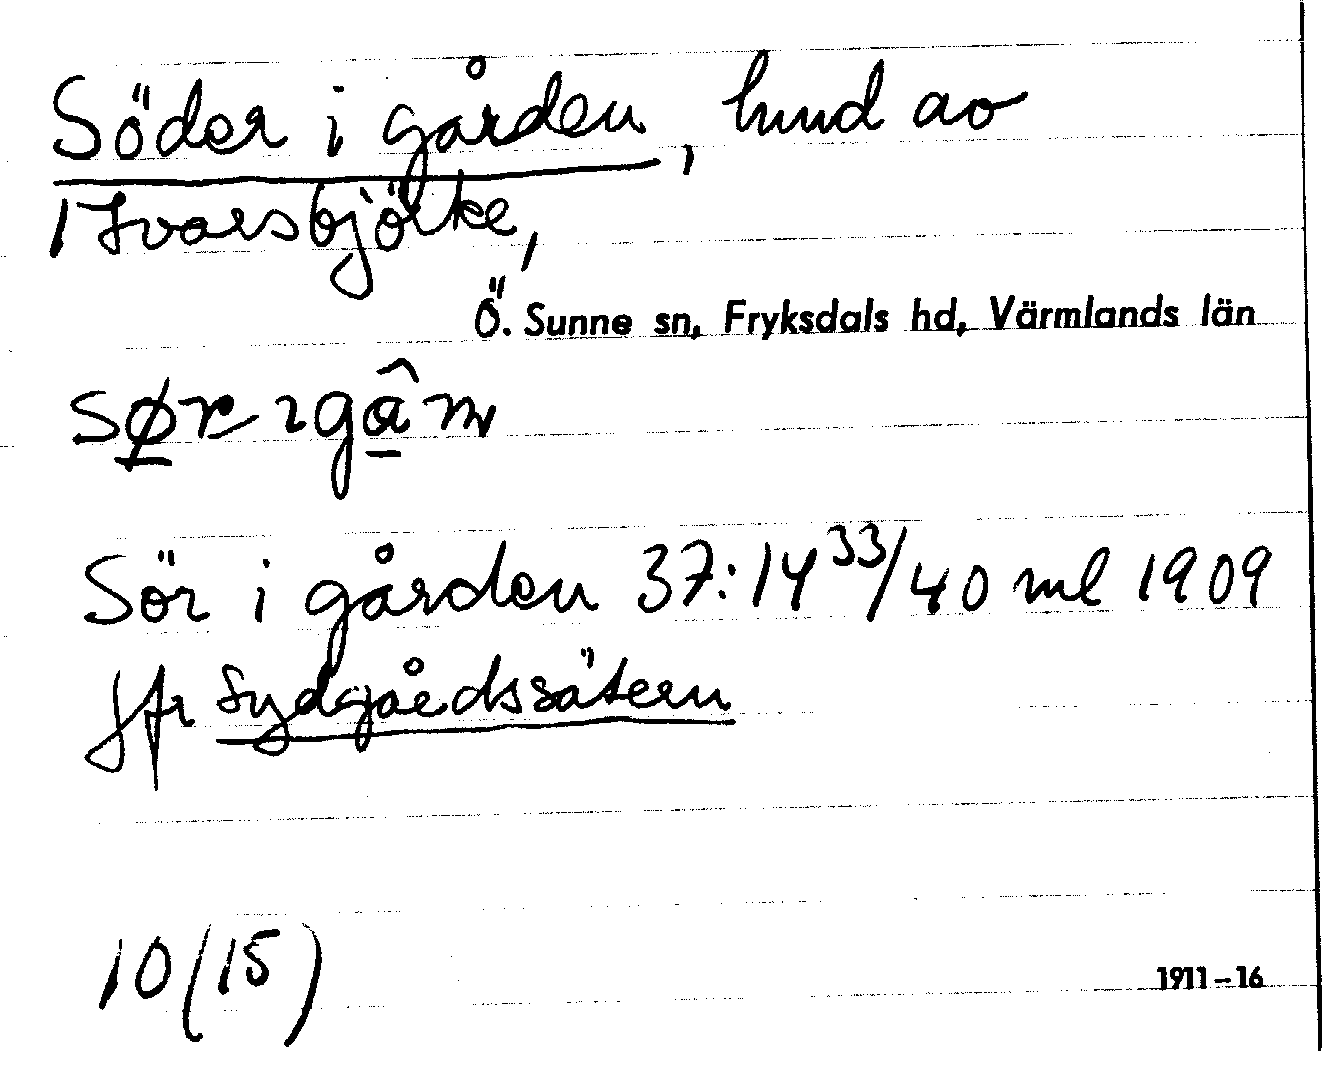 Söder i gården, hmd av
1 Ivarsbjörke,
Ö. Sunne sn, Fryksdals hd, Värmlands län
Sör i gården 37:14³³/40 ml 1909
Jfr Sydgårdssätern
10(15)
1911–16